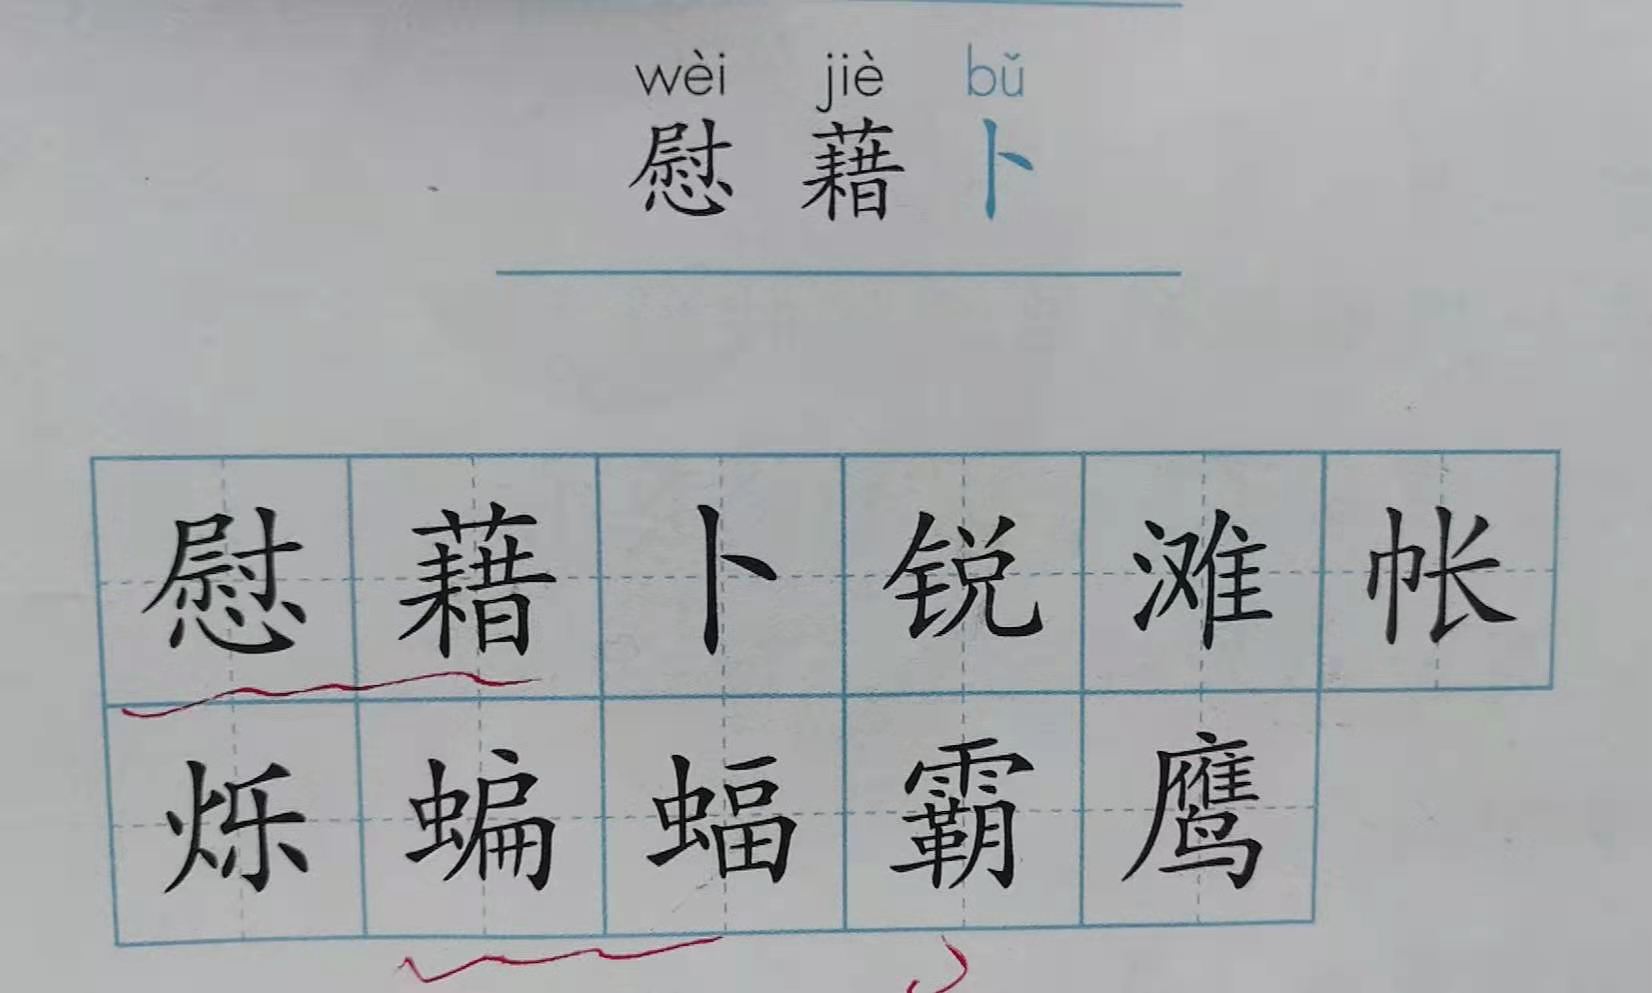 wèi jiè bǔ
慰 藉 卜
慰 藉 卜 锐 滩 帐
烁 蝙 蝠 霸 鹰